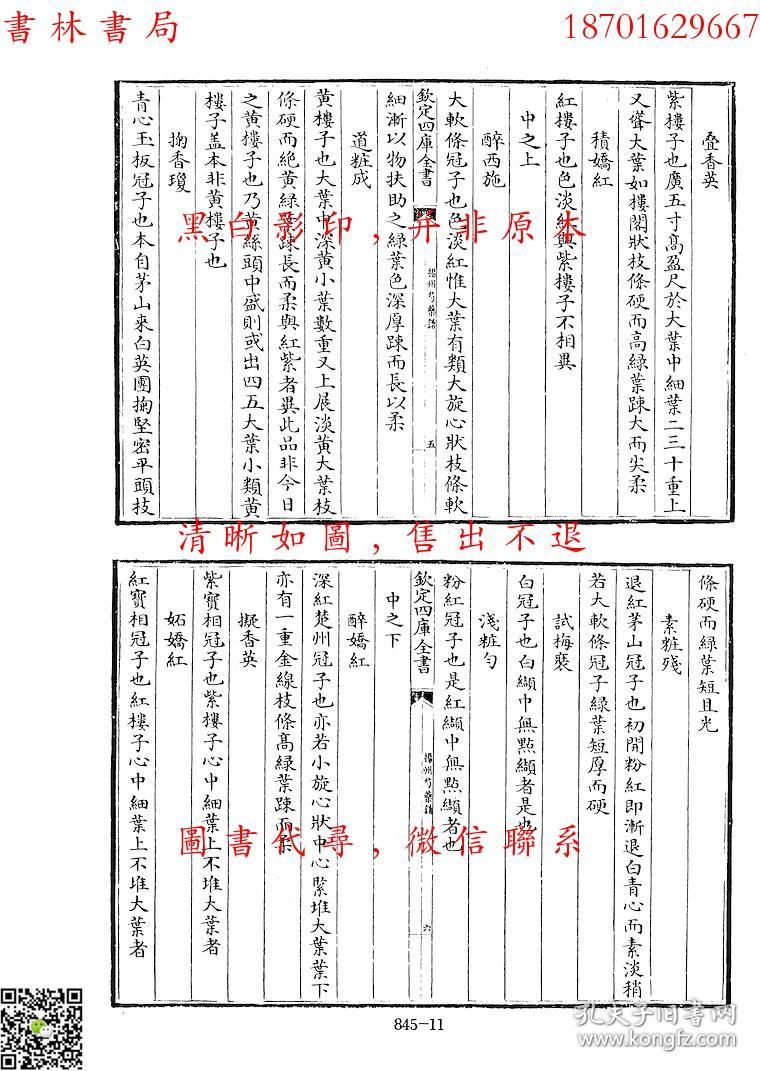 書林書局
18701629667
叠香英
紫樓子也廣五寸髙盈尺於大葉中細葉二三十重上
又聳大葉如樓閣狀枝條硬而高綠葉踈大而尖柔
積嬌紅
紅樓子也色淡紅與紫樓子不相異
中之上
醉西施
大軟條冠子也色淡紅惟大葉有類大旋心狀枝條軟
欽定四庫全書
揚州芍藥譜
五
細漸以物扶助之綠葉色深厚踈而長以柔
道粧成
黄樓子也大葉中深黄小葉數重又上展淡黄大葉枝
條硬而絶黄綠葉踈長而柔與紅紫者異此品非今日
之黄樓子也乃黄絲頭中盛則或出四五大葉小類黄
樓子葢本非黄樓子也
掬香瓊
青心玉板冠子也本自茅山來白英團掬堅密平頭枝
條硬而綠葉短且光
素粧殘
退紅茅山冠子也初開粉紅即漸退白青心而素淡稍
若大軟條冠子綠葉短厚而硬
試梅裝
白冠子也白纈中無點纈者是也
淺粧勻
粉紅冠子也是紅纈中無點纈者也
欽定四庫全書
揚州芍藥譜
六
中之下
醉嬌紅
深紅楚州冠子也亦若小旋心狀中心緊堆大葉葉下
亦有一重金線枝條髙綠葉踈而柔
擬香英
紫寶相冠子也紫樓子心中細葉上不堆大葉者
妬嬌紅
紅寶相冠子也紅樓子心中細葉上不堆大葉者
黑白影印，并非原本
清晰如圖，售出不退
圖書代尋，微信聯系
845-11
孔夫子旧書网
www.kongfz.com